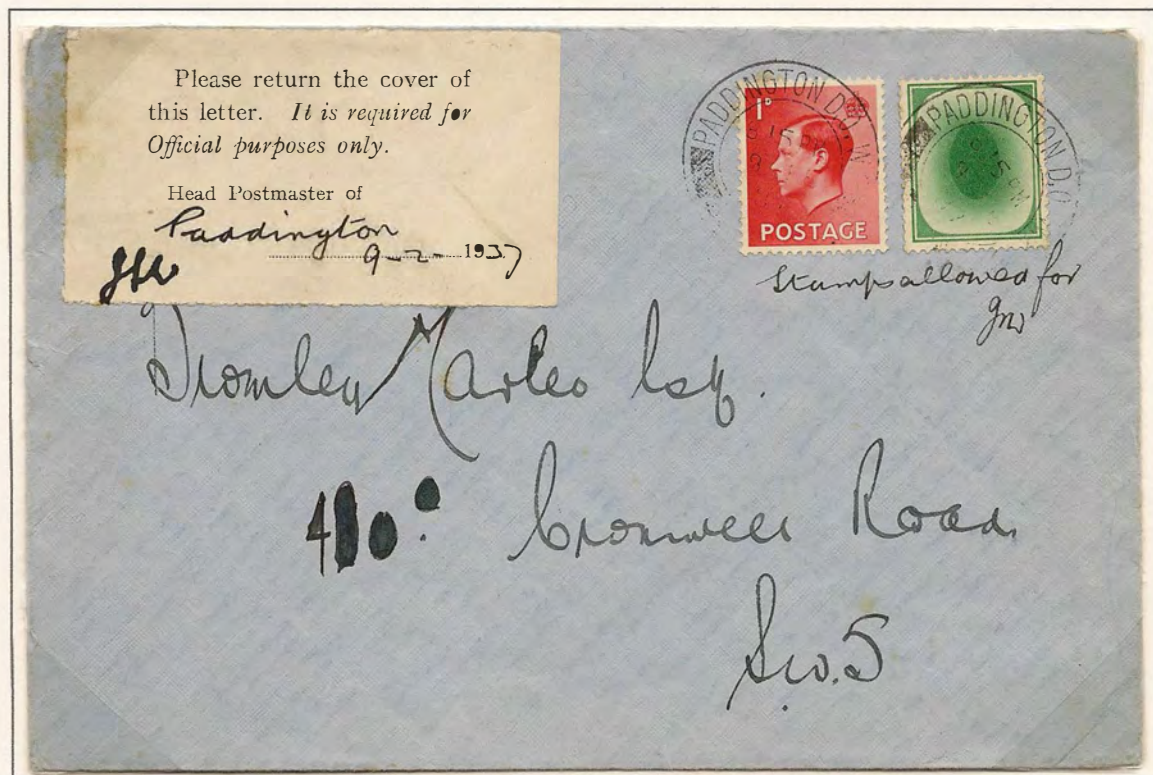 Please return the cover of
this letter. It is required for
Official purposes only.
Head Postmaster of
Paddington
9-2-1937
PADDINGTON D.O. W.
1D
POSTAGE
PADDINGTON D.O.
Stamps allowed for
Esq.
Cromwell Road
S.W.5